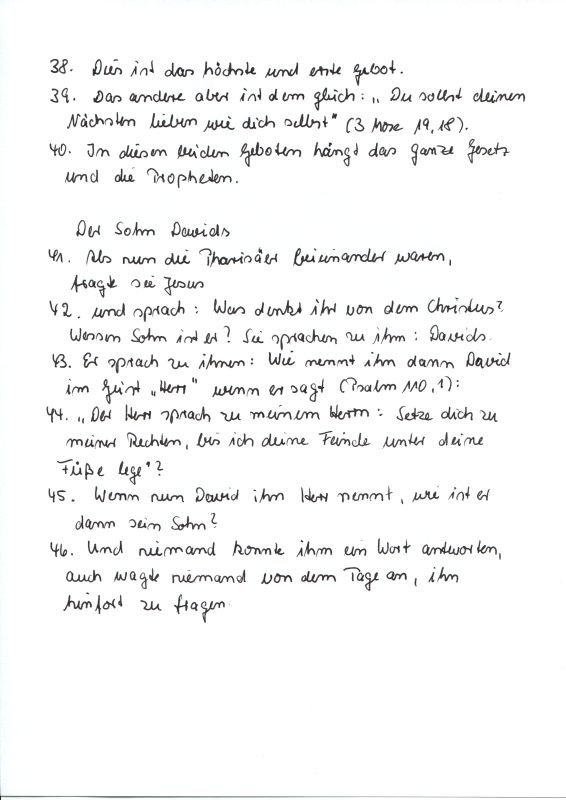 38. Dies ist das höchste und erste Gebot.
39. Das andere aber ist dem gleich: „Du sollst deinen
Nächsten lieben wie dich selbst" (3 Mose 19,18).
40. In diesen beiden Geboten hängt das ganze Gesetz
und die Propheten.
Der Sohn Davids
41. Als nun die Pharisäer beieinander waren,
fragte sie Jesus
42. und sprach: Was denkt ihr von dem Christus?
Wessen Sohn ist er? Sie sprachen zu ihm: Davids.
43. Er sprach zu ihnen: Wie nennt ihn dann David
im Geist „Herr" wenn er sagt (Psalm 110,1):
44. „Der Herr sprach zu meinem Herrn: Setze dich zu
meiner Rechten, bis ich deine Feinde unter deine
Füße lege"?
45. Wenn nun David ihn Herr nennt, wie ist er
dann sein Sohn?
46. Und niemand konnte ihm ein Wort antworten,
auch wagte niemand von dem Tage an, ihn
hinfort zu fragen.